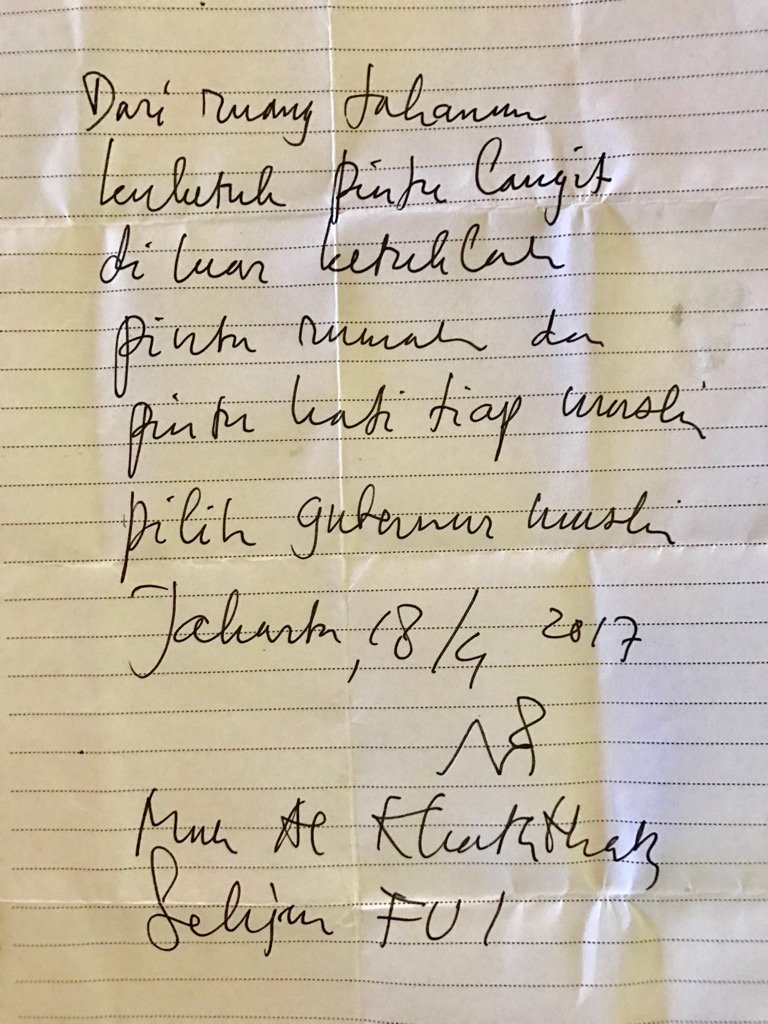 Dari ruang tahanan
kuketuk pintu langit
di luar ketuklah
pintu rumah dan
pintu hati tiap muslim
pilih gubernur muslim
Jakarta, 18/4 2017
Muh Al Khaththath
Sekjen FUI